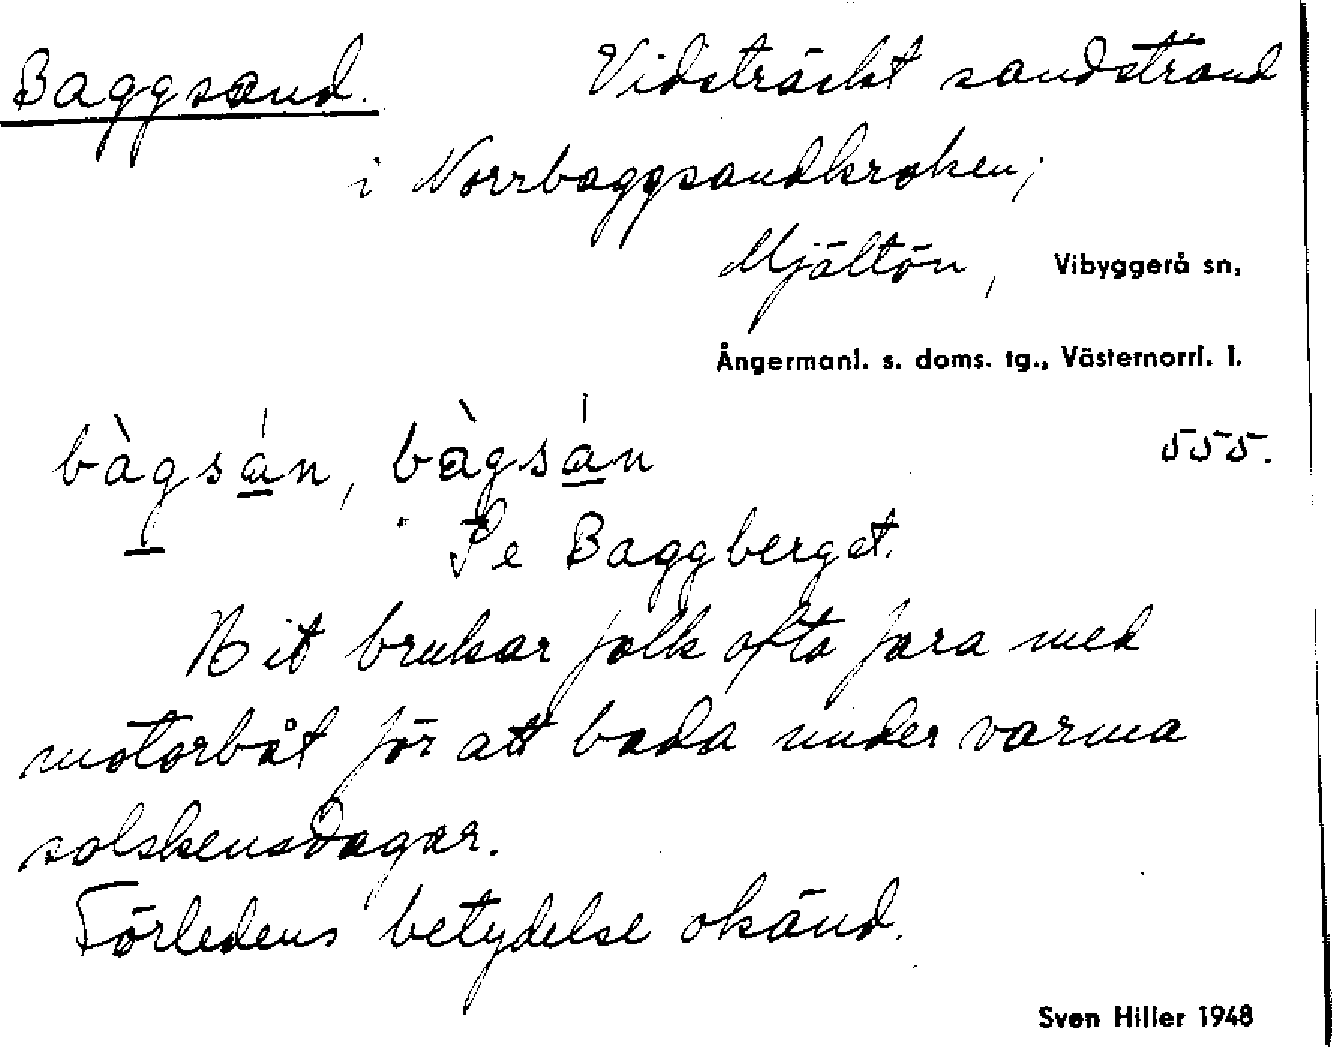 Baggsand. Vidsträckt sandstrand
i Norrbaggsandkroken;
Mjältön, Vibyggerå sn,
Ångermanl. s. doms. tg., Västernorrl. l.
bàgsán, bàgsán 555.
Se Baggberget.
Hit brukar folk ofta fara med
motorbåt för att bada under varma
solskensdagar.
Förledens betydelse okänd.
Sven Hiller 1948